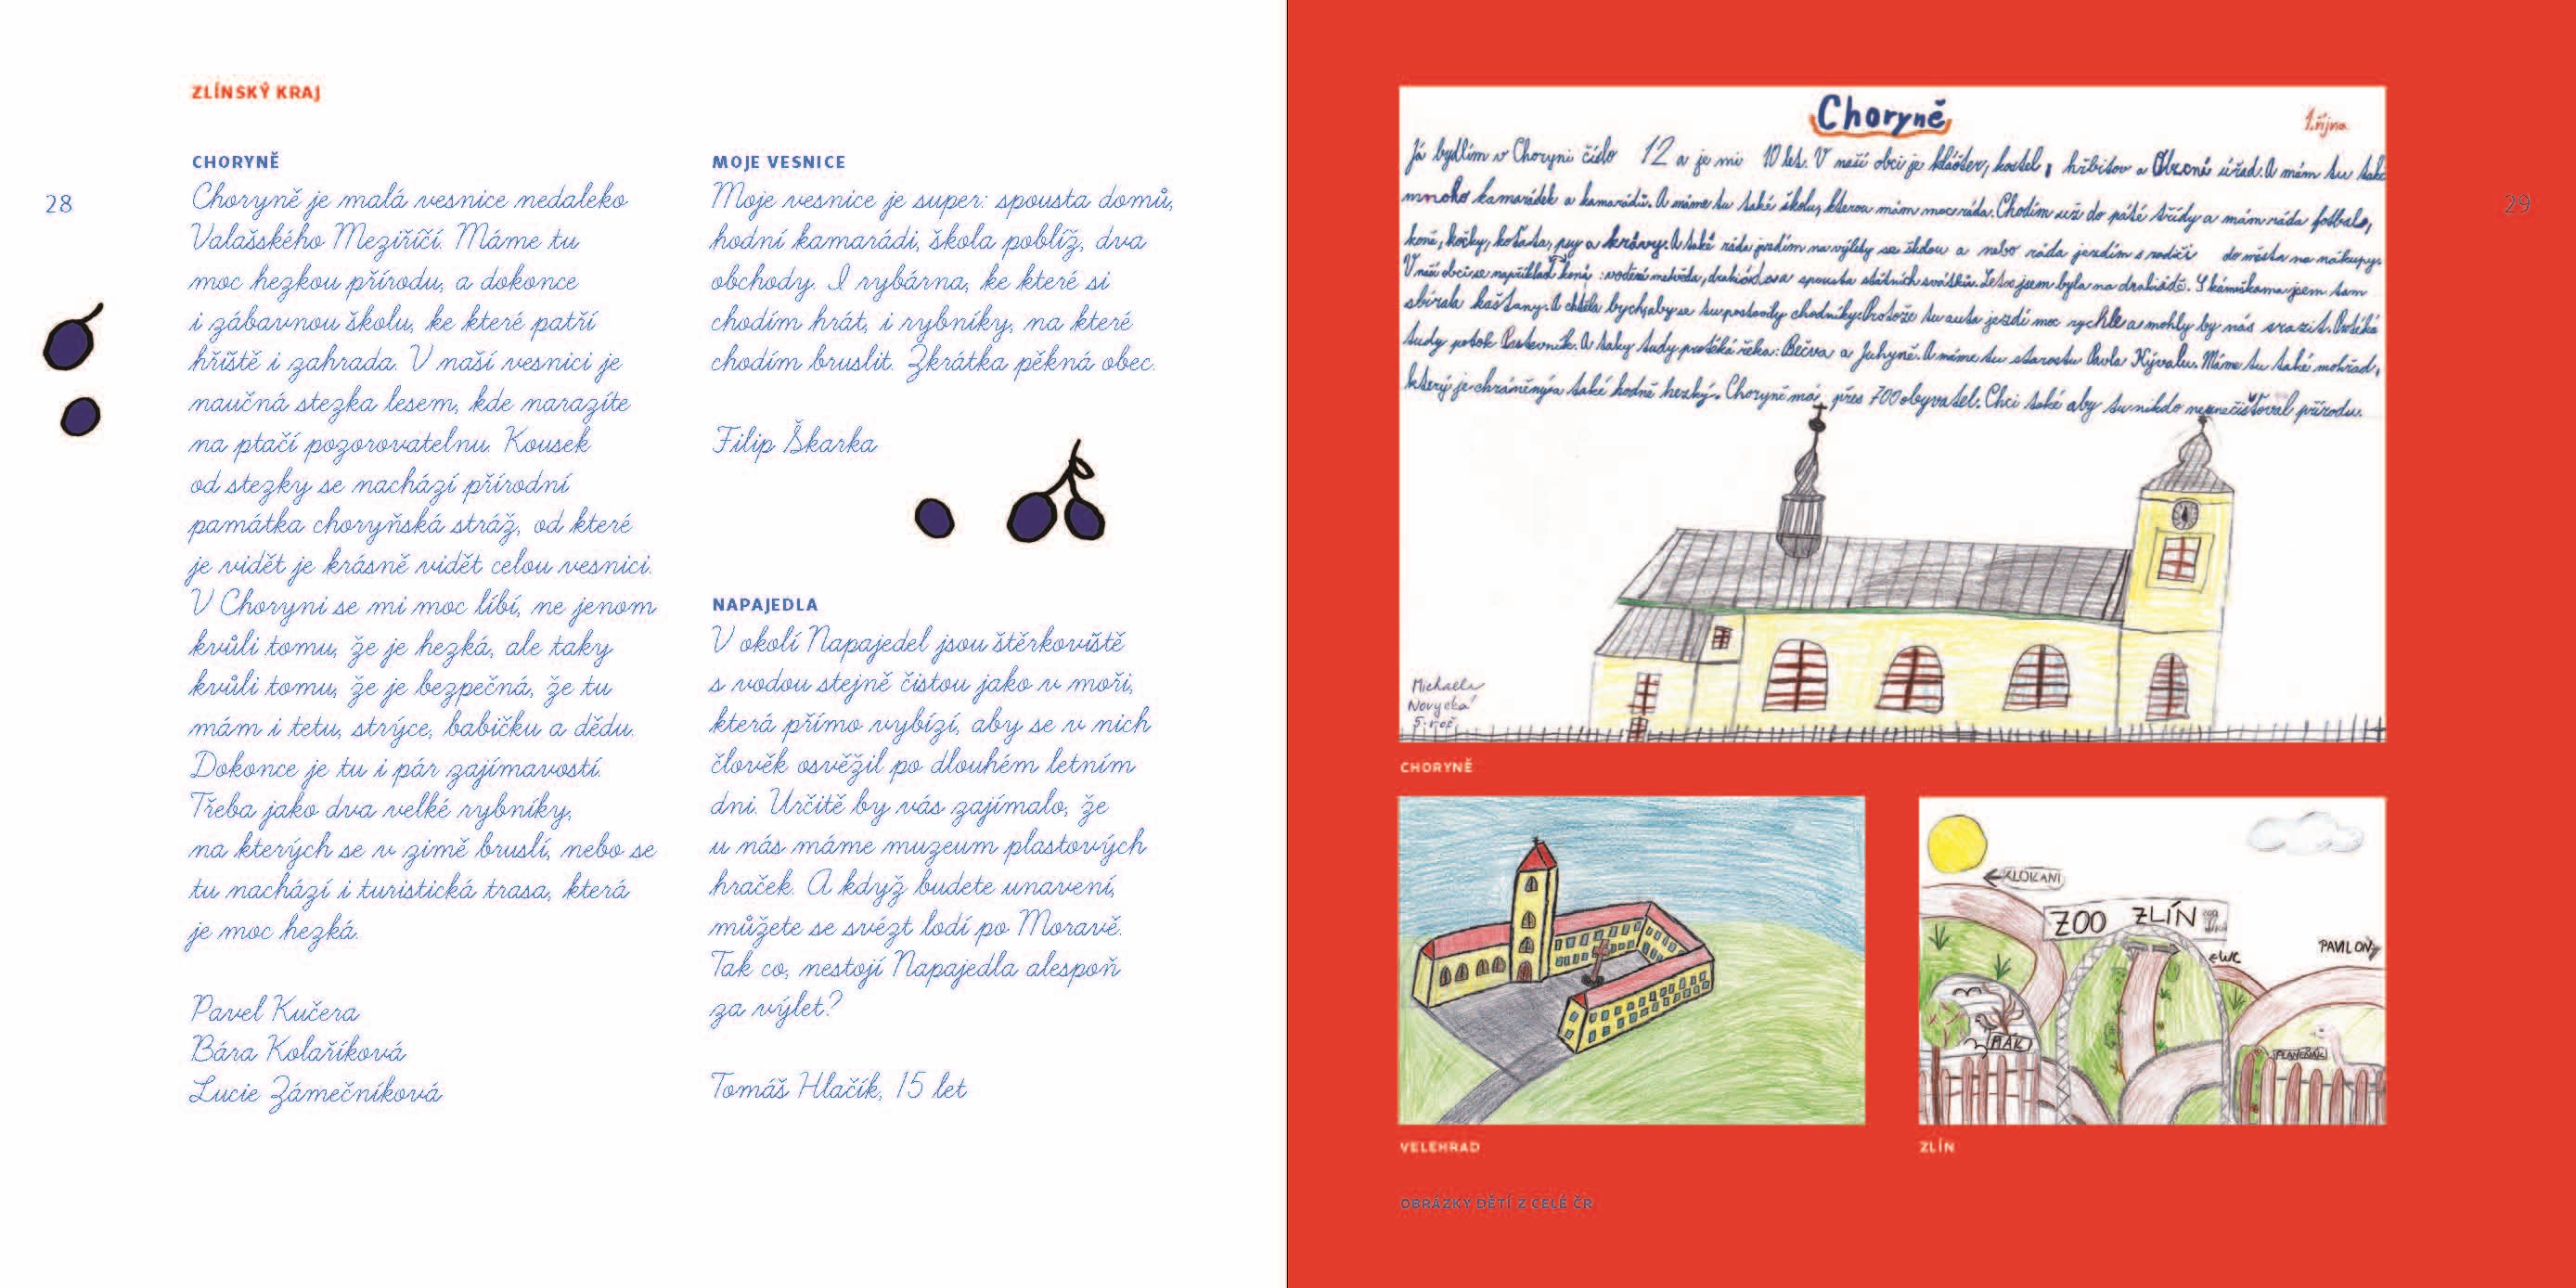 ZLÍNSKÝ KRAJ
28
CHORYNĚ
Choryně je malá vesnice nedaleko
Valašského Meziříčí. Máme tu
moc hezkou přírodu, a dokonce
i zábavnou školu, ke které patří
hřiště i zahrada. V naší vesnici je
naučná stezka lesem, kde narazíte
na ptačí pozorovatelnu. Kousek
od stezky se nachází přírodní
památka choryňská stráž, od které
je vidět je krásně vidět celou vesnici.
V Choryni se mi moc líbí, ne jenom
kvůli tomu, že je hezká, ale taky
kvůli tomu, že je bezpečná, že tu
mám i tetu, strýce, babičku a dědu.
Dokonce je tu i pár zajímavostí.
Třeba jako dva velké rybníky,
na kterých se v zimě bruslí, nebo se
tu nachází i turistická trasa, která
je moc hezká.
Pavel Kučera
Bára Kolaříková
Lucie Zámečníková
MOJE VESNICE
Moje vesnice je super: spousta domů,
hodní kamarádi, škola poblíž, dva
obchody. I rybárna, ke které si
chodím hrát, i rybníky, na které
chodím bruslit. Zkrátka pěkná obec.
Filip Škarka
NAPAJEDLA
V okolí Napajedel jsou štěrkoviště
s vodou stejně čistou jako v moři,
která přímo vybízí, aby se v nich
člověk osvěžil po dlouhém letním
dni. Určitě by vás zajímalo, že
u nás máme muzeum plastových
hraček. A když budete unavení,
můžete se svézt lodí po Moravě.
Tak co, nestojí Napajedla alespoň
za výlet?
Tomáš Hlačík, 15 let
29
Choryně
1. října
Já bydlím v Choryni číslo 12 a je mi 10 let. V naší obci je klášter, kostel, hřbitov a Obecní úřad. A mám tu také
mnoho kamarádek a kamarádů. A máme tu také školu, kterou mám moc ráda. Chodím už do páté třídy a mám ráda fotbal,
koně, kočky, koťata, psy a krávy. A také ráda jezdím na výlety se školou a nebo ráda jezdím s rodiči do města na nákupy.
V naší obci se například koná: vodění medvěda, drakiáda a spousta státních svátků. Letos jsem byla na drakiádě. S kámoškama jsem tam
sbírala kaštany. A chtěla bych, aby se tu postavily chodníky. Protože tu auta jezdí moc rychle a mohly by nás srazit. Protéká
tudy potok Pastevník. A taky tudy protéká řeka: Bečva a Juhyně. A máme tu starostu Pavla Kývalu. Máme tu také mokřad,
který je chráněný a také hodně hezký. Choryně má přes 700 obyvatel. Chci také aby tu nikdo neznečišťoval přírodu.
Michaela
Novycká
5. roč.
CHORYNĚ
VELEHRAD
KLOKANI
ZOO ZLÍN
WC
PAVILONY
ZLÍN
OBRÁZKY DĚTÍ Z CELÉ ČR